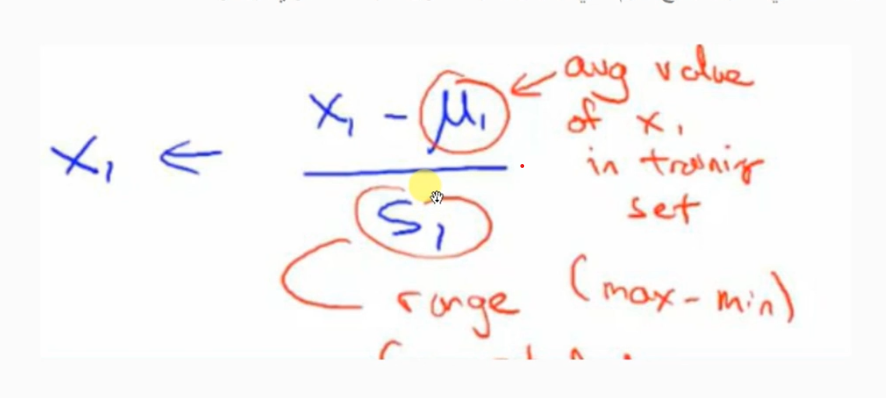 x₁ ← (x₁ - μ₁) / S₁
avg value
of x₁
in training
set
range (max-min)